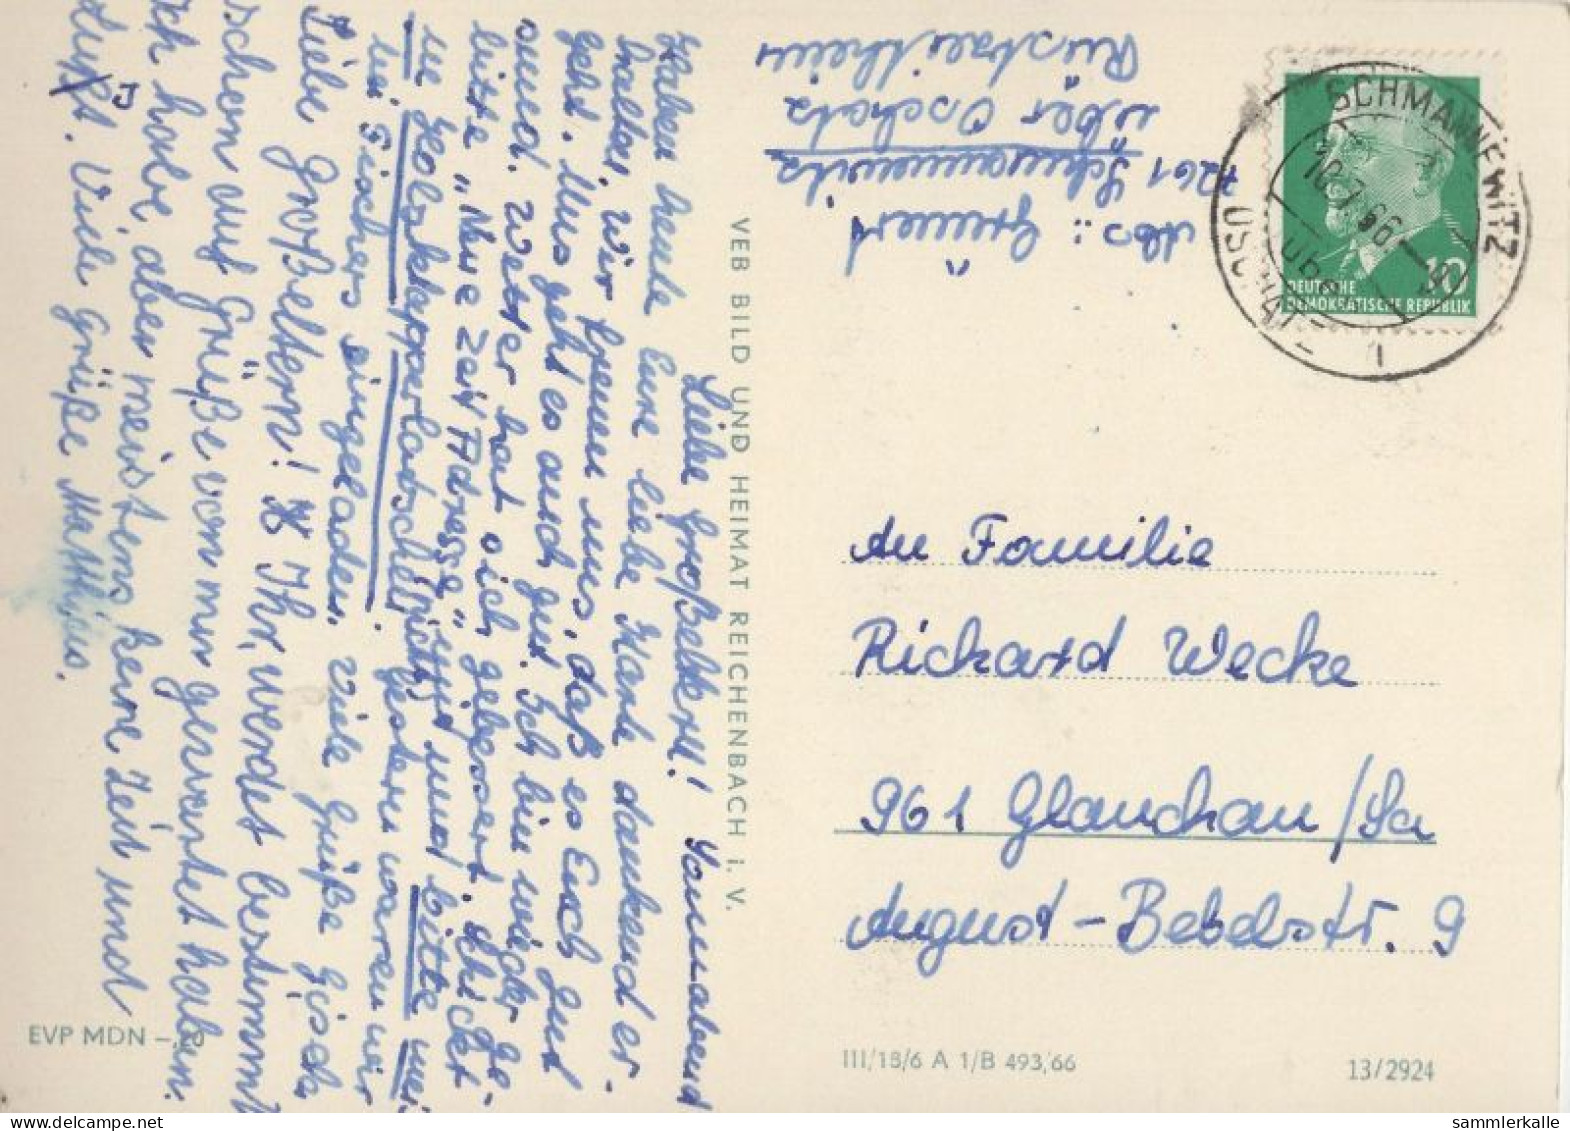 Liebe Großeltern! Sonnabend
Haben heute Eure liebe Karte dankend er-
halten, wir freuen uns, daß es Euch gut
geht. Uns geht es auch gut. Ich bin wieder ge-
sund. Wetter hat sich gebessert. Schickt
bitte "Neue Zeit Adresse" und bitte mei-
ne Holzklapperlatschen mit. Gestern waren wir
bei Fischers eingeladen. Viele Grüße Gisela
Liebe Großeltern! Ihr, werdet bestimmt
schon auf Grüße von mir gewartet haben.
Ich habe aber meistens keine Zeit und
Lust. Viele Grüße Matthias.
J
VEB BILD UND HEIMAT REICHENBACH i. V.
EVP MDN –,20
Abs.: Grünert
7261 Schmannewitz
über Oschatz
SCHMANNEWITZ
10.7.66
über
OSCHATZ
10
DEUTSCHE
DEMOKRATISCHE REPUBLIK
An Familie
Richard Wecke
961 Glauchau/Sa
August-Bebelstr. 9
III/18/6 A 1/B 493/66
13/2924
sammlerkalle